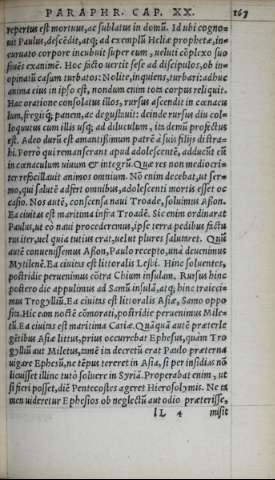 PARAPHR. CAP. XX. 167
repertus est mortuus, ac sublatus in domũ. Id ubi cognouit
Paulus, descẽdit, atq; ad exemplũ Heliæ prophetæ, in-
curuato corpore incubuit super eum, uelut cõplexo suo
fouẽs exanimẽ. Hoc facto uertit sese ad discipulos, ob in-
opinatũ casum turbatos: Nolite, inquiens, turbari: adhuc
anima eius in ipso est, nondum enim tom corpus reliquit.
Hac oratione consolatus illos, rursus ascendit in cœnacu
lum, fregitq; panem, ac degustauit: deinde rursus diu col-
loquutus cum illis usq; ad diluculum, ita demũ profectus
est. Adeo durũ est amantissimum patrẽ à suis filijs distra-
hi. Porro qui remanserant apud adolescentẽ, adduxẽt eũ
in cœnaculum uiuum & integrũ. Quæ res non mediocri-
ter refocillauit animos omnium. Nõ enim decebat, ut ser-
mo, qui salutẽ adfert omnibus, adolescenti mortis esset oc
casio. Nos autẽ, conscensa naui Troade, soluimus Asson.
Ea ciuitas est maritima infra Troadẽ. Sic enim ordinarat
Paulus, ut eo naui procederemus, ipse terra pedibus factu
rus iter, uel quia tutius erat, uel ut plures salutaret. Quũ
autẽ conuenissemus Asson, Paulo recepto, unà deuenimus
Mytilenẽ. Ea ciuitas est littoralis Lesbi. Hinc soluentes,
postridie peruenimus cõtra Chium insulam. Rursus hinc
postero die appulimus ad Samũ insulã, atq; hinc traieci-
mus Trogylliũ. Ea ciuitas est littoralis Asiæ, Samo oppo
sita. Hic cum noctẽ cõmorati, postridie peruenimus Mile-
tũ. Ea ciuitas est maritima Cariæ. Quãquã autẽ præterle
gẽtibus Asiæ littus, prius occurrebat Ephesus, quàm Tro
gylliũ aut Miletus, tamẽ in decretũ erat Paulo præterna
uigare Ephesũ, ne tẽpus tereret in Asia, si per insidias nõ
licuisset illinc tutò soluere in Syriã. Properabat enim, ut
si fieri posset, diẽ Pentecostes ageret Hierosolymis. Ne ta
men uideretur Ephesios ob neglectũ aut odio præterisse,
lL 4 misit